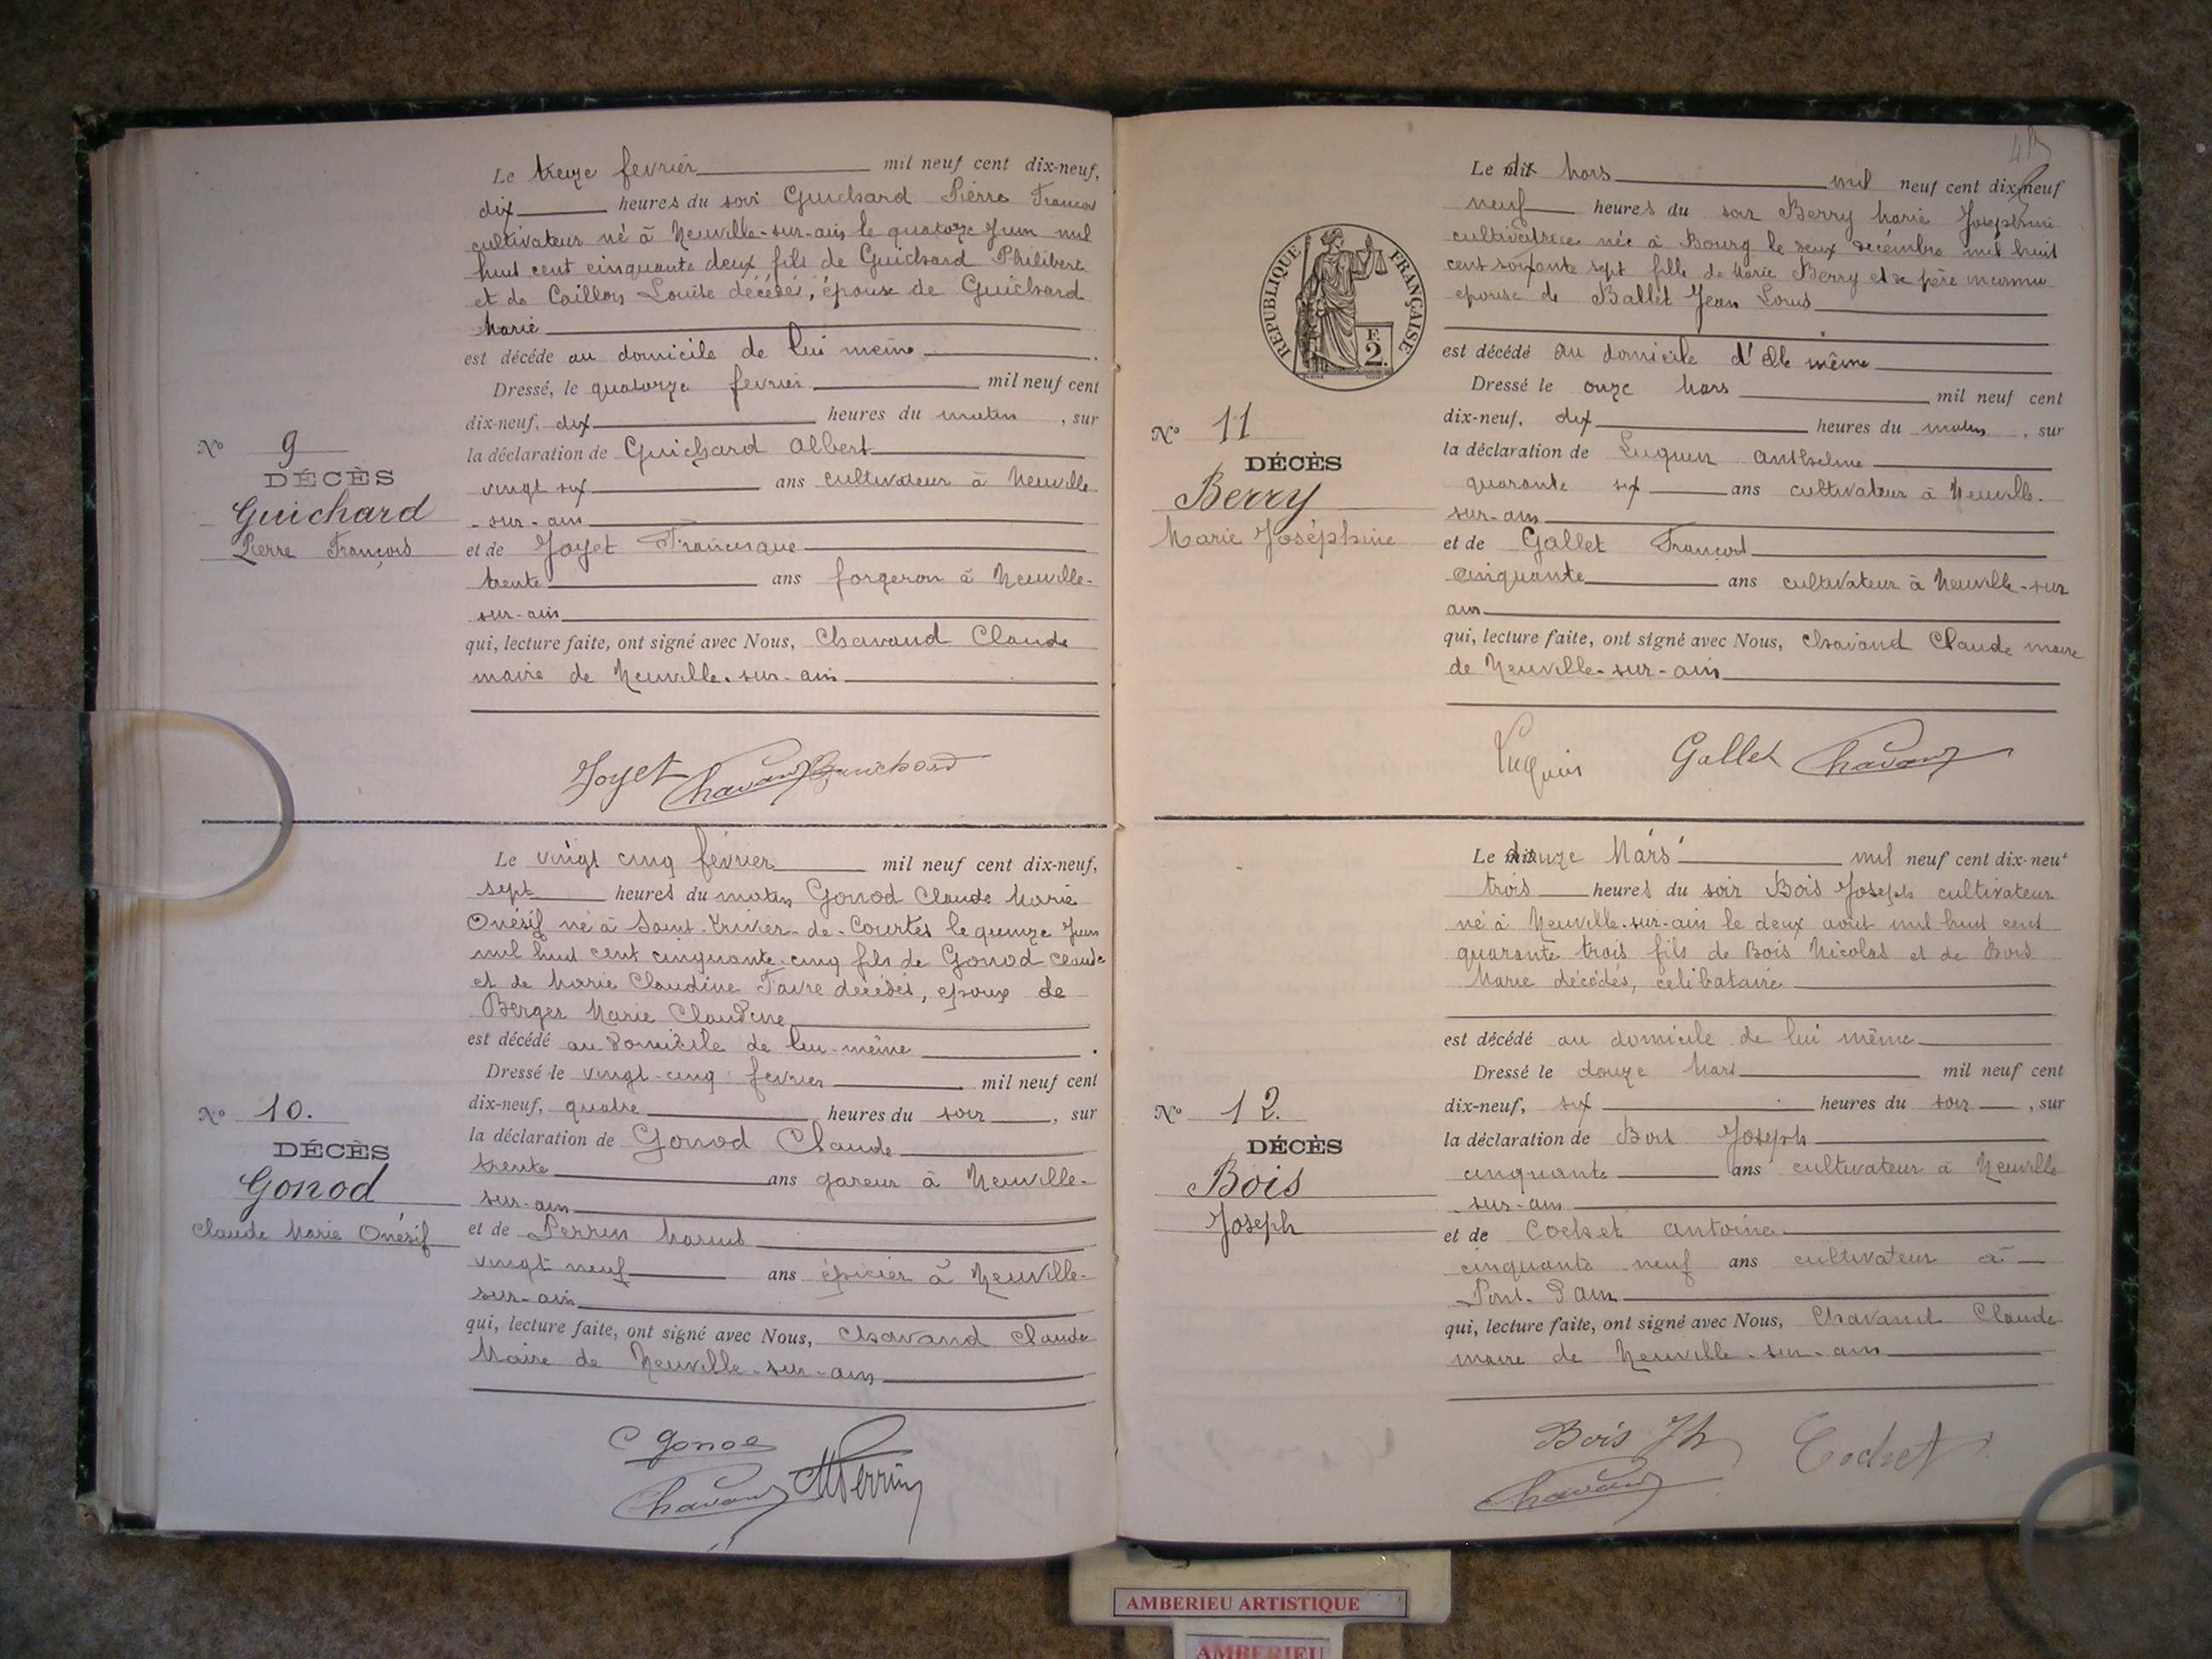 Le treize fevrier mil neuf cent dix-neuf,
dix heures du soir Guichard Pierre François
cultivateur né à Neuville-sur-ain le quatorze Juin mil
huit cent cinquante deux fils de Guichard Philibert
et de Caillon Louise décédés, épouse de Guichard
Marie
est décédé au domicile de lui meme.
Dressé, le quatorze fevrier mil neuf cent
dix-neuf, dix heures du matin, sur
la déclaration de Guichard Albert
vingt six ans cultivateur à Neuville
-sur-ain
et de Joyet Francisque
trente ans forgeron à Neuville-
sur-ain
qui, lecture faite, ont signé avec Nous, Chavand Claude
maire de Neuville-sur-ain
N° 9
DÉCÈS
Guichard
Pierre François
Joyet Chavand Guichard
Le vingt cinq février mil neuf cent dix-neuf,
sept heures du matin Gonod Claude Marie
Onésif né à Saint-Trivier-de-Courtes le quinze Juin
mil huit cent cinquante-cinq fils de Gonod Claude
et de Marie Claudine Favre décédés, epoux de
Berger Marie Claudine
est décédé au domicile de lui-même.
Dressé le vingt-cinq fevrier mil neuf cent
dix-neuf, quatre heures du soir, sur
la déclaration de Gonod Claude
trente ans gareur à Neuville-
sur-ain
et de Perrin Marius
vingt neuf ans épicier à Neuville-
sur-ain
qui, lecture faite, ont signé avec Nous, Chavand Claude
Maire de Neuville-sur-ain
N° 10.
DÉCÈS
Gonod
Claude Marie Onésif
C Gonod
Chavand MPerrin
Le dix Mars mil neuf cent dix-neuf
neuf heures du soir Berry Marie Josephine
cultivatrice née à Bourg le deux décembre mil huit
cent soixante sept fille de Marie Berry et de père inconnu
epouse de Ballet Jean Louis
RÉPUBLIQUE FRANÇAISE
F.
2.
est décédé au domicile d'elle même
Dressé le onze Mars mil neuf cent
dix-neuf, dix heures du matin, sur
la déclaration de Luquin Anthelme
quarante six ans cultivateur à Neuville-
sur-ain
et de Gallet François
cinquante ans cultivateur à Neuville-sur
ain
qui, lecture faite, ont signé avec Nous, Chavand Claude maire
de Neuville-sur-ain
N° 11
DÉCÈS
Berry
Marie Joséphine
Luquin Gallet Chavand
Le douze Mars mil neuf cent dix-neuf
trois heures du soir Bois Joseph cultivateur
né à Neuville-sur-ain le deux août mil huit cent
quarante trois fils de Bois Nicolas et de Bois
Marie décédés, célibataire
est décédé au domicile de lui même
Dressé le douze Mars mil neuf cent
dix-neuf, six heures du soir, sur
la déclaration de Bois Joseph
cinquante ans cultivateur à Neuville
-sur-ain
et de Cochet Antoine
cinquante-neuf ans cultivateur à
Pont-d'ain
qui, lecture faite, ont signé avec Nous, Chavand Claude
maire de Neuville-sur-ain
N° 12.
DÉCÈS
Bois
Joseph
Bois Jh Cochet
Chavand
AMBERIEU ARTISTIQUE
AMBERIEU